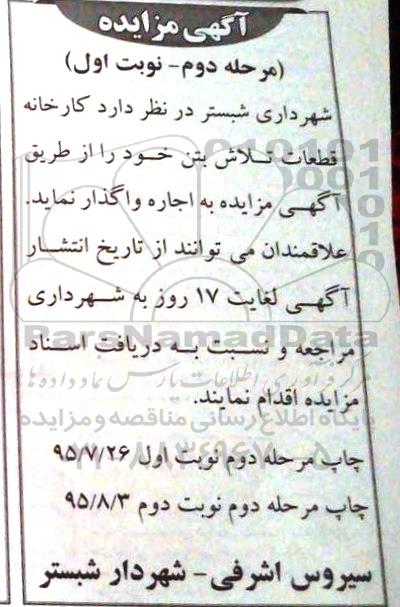 آگهی مزایده
(مرحله دوم- نوبت اول)
شهرداری شبستر در نظر دارد کارخانه
قطعات تلاش بتن خود را از طریق
آگهی مزایده به اجاره واگذار نماید.
علاقمندان می توانند از تاریخ انتشار
آگهی لغایت ۱۷ روز به شهرداری
مراجعه و نسبت به دریافت اسناد
مزایده اقدام نمایند.
چاپ مرحله دوم نوبت اول ۹۵/۷/۲۶
چاپ مرحله دوم نوبت دوم ۹۵/۸/۳
سیروس اشرفی- شهردار شبستر
ParsNamadData
مرکز فرآوری اطلاعات پارس نماد داده ها
پایگاه اطلاع رسانی مناقصه و مزایده